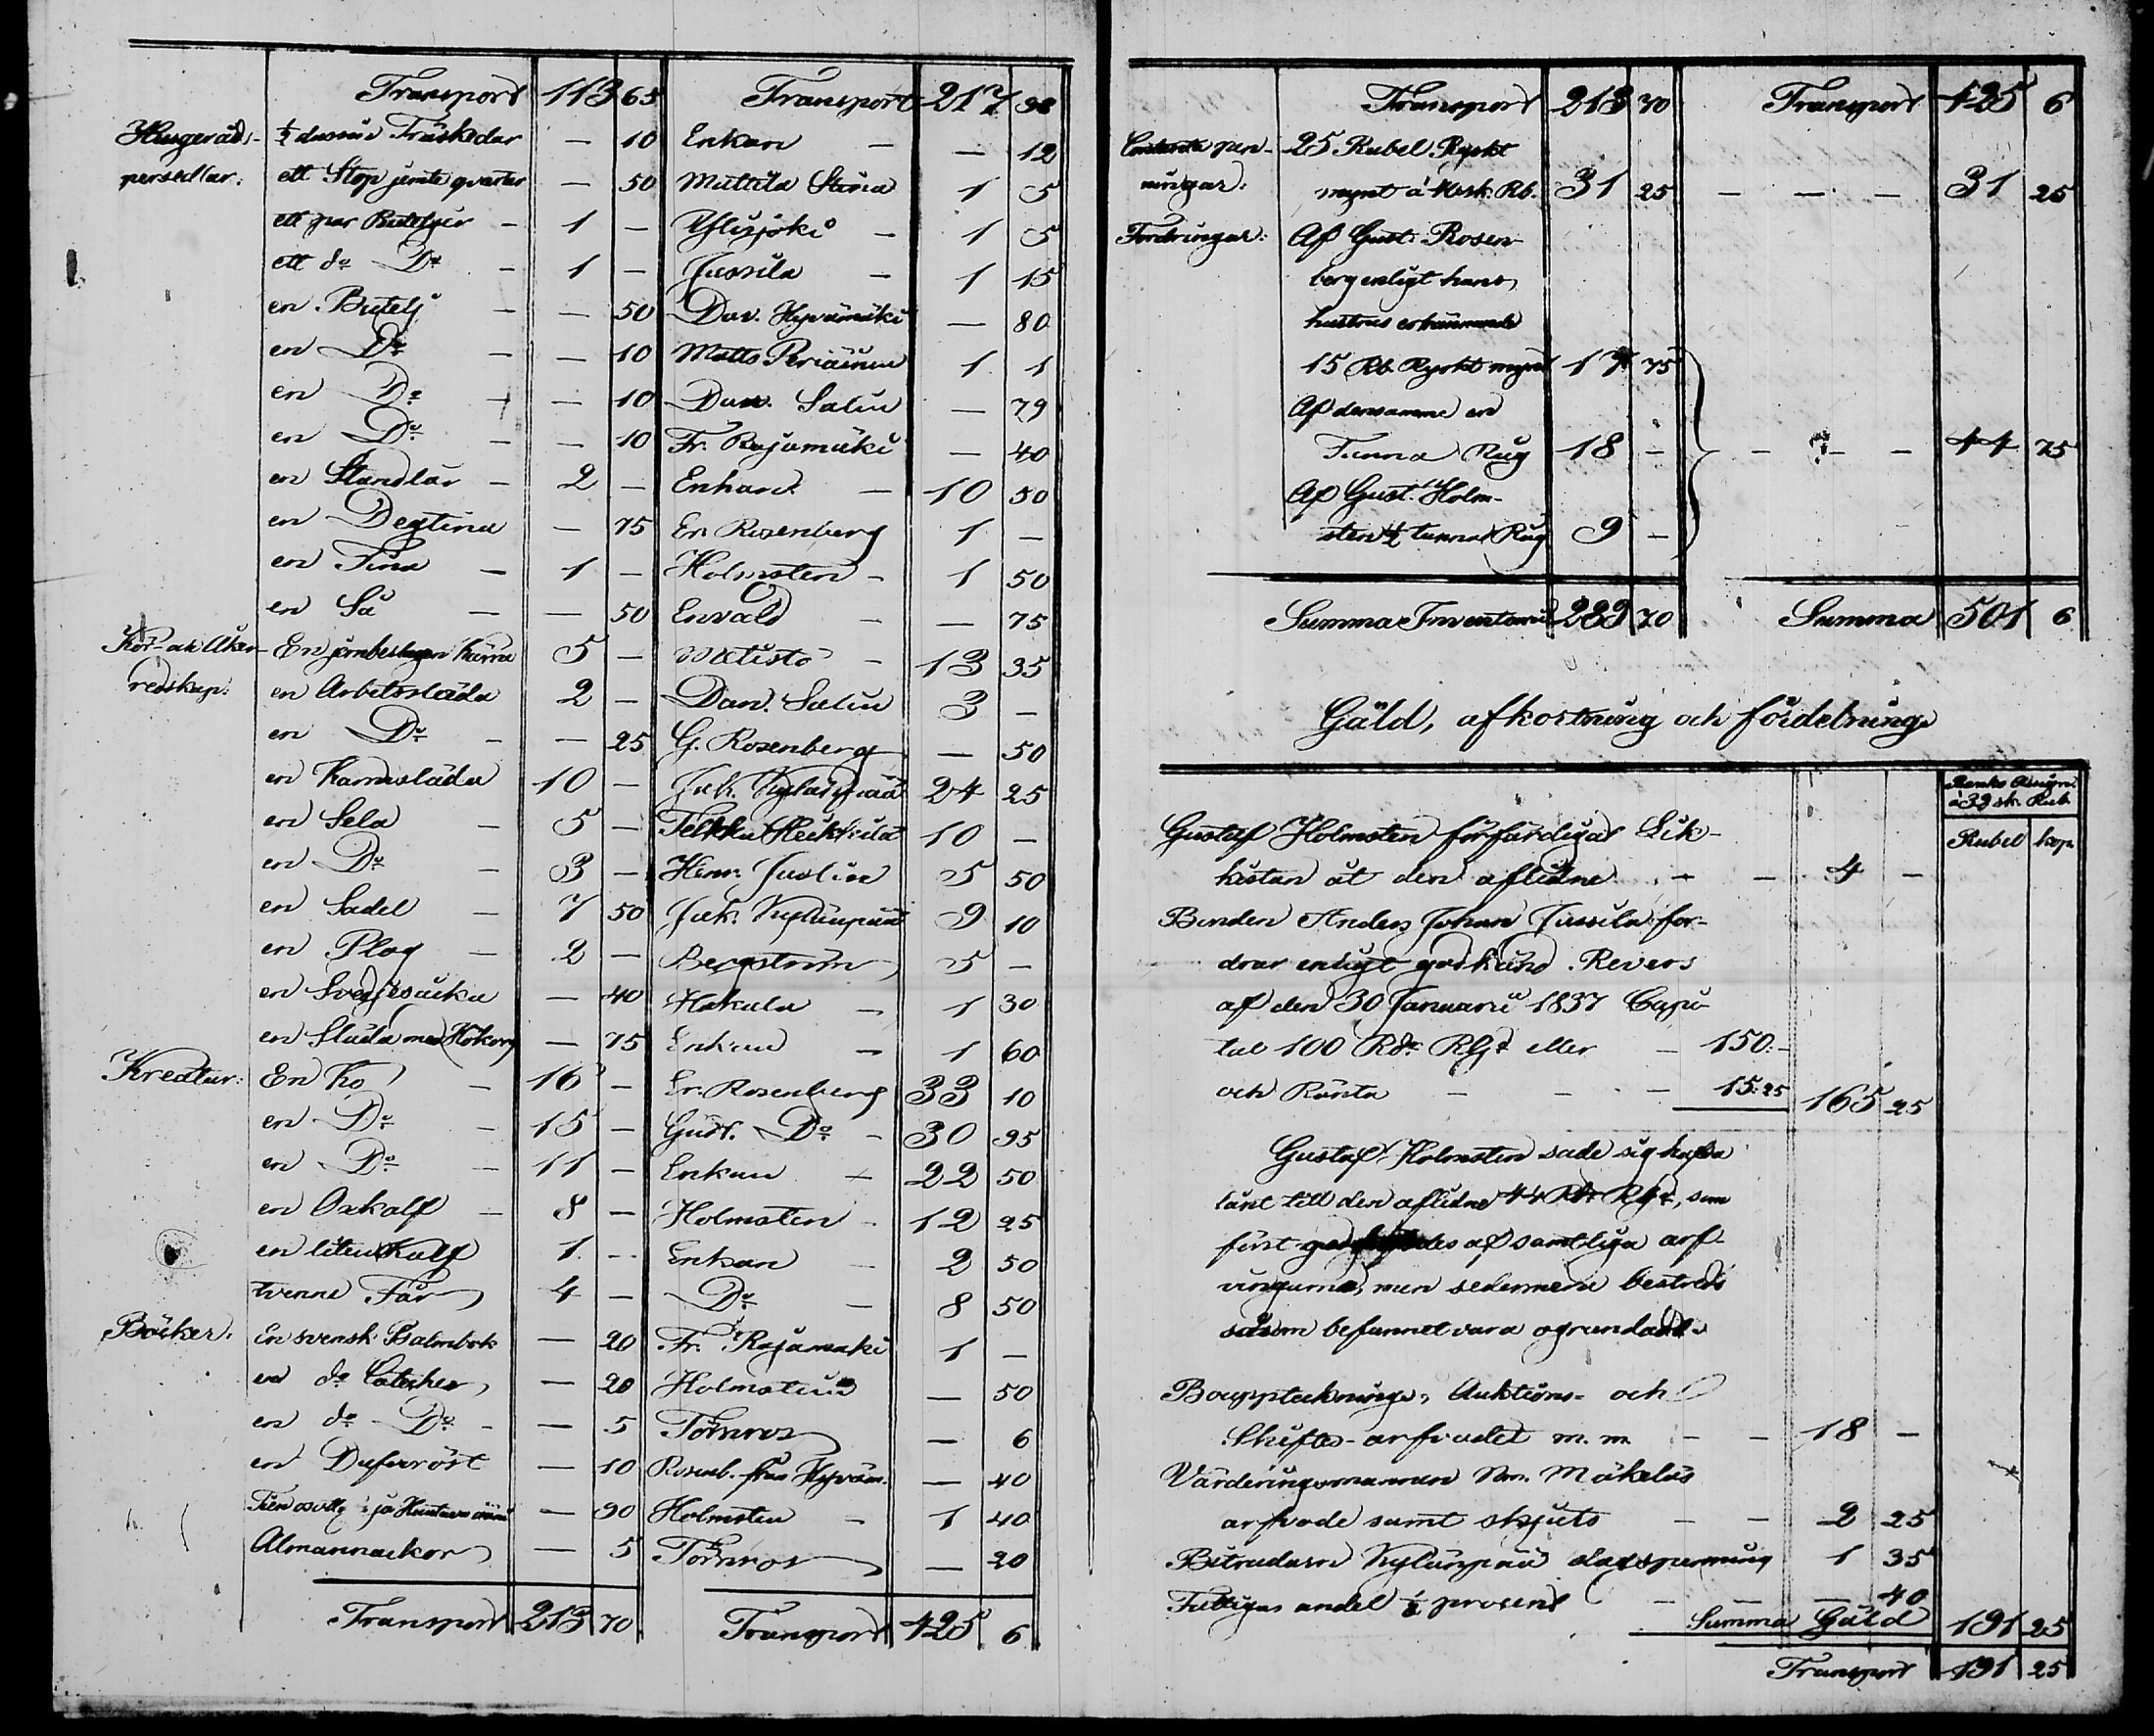 Transport 113 65 Transport 217 98
Husgeråds- ½ dussin Träskedar — 10 Enkan — — 12
persedlar: ett Stop jemte qvarter — 50 Mattila Stina 1 5
ett par Buteljer — 1 — Ylisjoki — 1 5
ett do Do — 1 — Jussila — 1 15
en Butelj — — 50 Dav. Hyvämäki — 80
en Do — — 10 Matts 1 1
en Do — — 10 Dan. Salin — 79
en Do — — 10 Fr. Rajamäki — 40
en — 2 — Enkan — 10 50
en Degtina — 75 Er. Rosenberg 1 —
en Tina — 1 — Holmsten — 1 50
en Så — — 50 Envald — — 75
Kör- och Åker- En jernbeslagen Kärra 5 — — 13 35
redskap: en Arbetssläda 2 — Dan. Salin 3 —
en Do — — 25 G. Rosenberg — 50
en Karmsläda 10 — Jak. Kylänpää 24 25
en Sela — 5 — Heikkilä 10 —
en Do — 3 — Henr. Juslin 5 50
en Sadel — 7 50 Jak. Kylänpää 9 10
en Plog — 2 — Bergström 5 —
en — 40 Hakala — 1 30
en Släda med Hökorg — 75 Enkan — 1 60
Kreatur: En Ko — 16 — Er. Rosenberg 33 10
en Do — 15 — Gust. Do — 30 95
en Do — 11 — Enkan — 22 50
en Oxkalf — 8 — Holmsten — 12 25
en liten Kalf 1 — Enkan — 2 50
tvenne Får 4 — Do — 8 50
Böcker: En svensk Psalmbok — 20 Fr. Rajamäki 1 —
en do Cateches — 20 Holmsten — 50
en do Do — — 5 Törnros — 6
en Dufvoröst — 10 Rosenb. från Hyväm. — 40
ja — 90 Holmsten — 1 40
Almannackor — 5 Törnros — 20
Transport 213 70 Transport 425 6
Transport 213 70 Transport 425 6
Contanta pen- 25 Rubel Ryskt
ningar: mynt à Rb. 31 25 — — — 31 25
Fordringar: Af Gust. Rosen-
berg enligt hans
hustrus erkännande
15 Rb. Ryskt mynt 17 75
Af densamme en
Tunna Råg 18 — — — — 44 75
Af Gust. Holm-
sten ½ tunna Råg 9 —
Summa Inventarii 289 70 Summa 501 6
Gäld, afkortning och fördelning
Banko Assign.
à 32 sk. Rub.
Rubel kop.
Gustaf Holmsten förfärdigat Lik-
kistan åt den aflidne — — 4 —
Bonden Anders Johan Jussila for-
drar enligt godkänd Revers
af den 30 Januarii 1837 Capi-
tal 100 Rdr Rgs eller — 150:—
och Ränta — — — 15:25 165 25
Gustaf Holmsten sade sig hafva
lånt till den aflidne 44 Rdr Rgs, som
först af samtliga arf-
vingarna, men sedermera bestreds
såsom befunnet vara ogrundadt.
Bouppteckninge-, Auktions- och
Skiftes-arfvodet m.m. — — 18 —
Värderingsmannen Mäkeläs
arfvode samt skjuts — — 2 25
Biträdaren Kylänpää 1 35
Fattigas andel ⅛ procent — — — 40
Summa Gäld 191 25
Transport 191 25